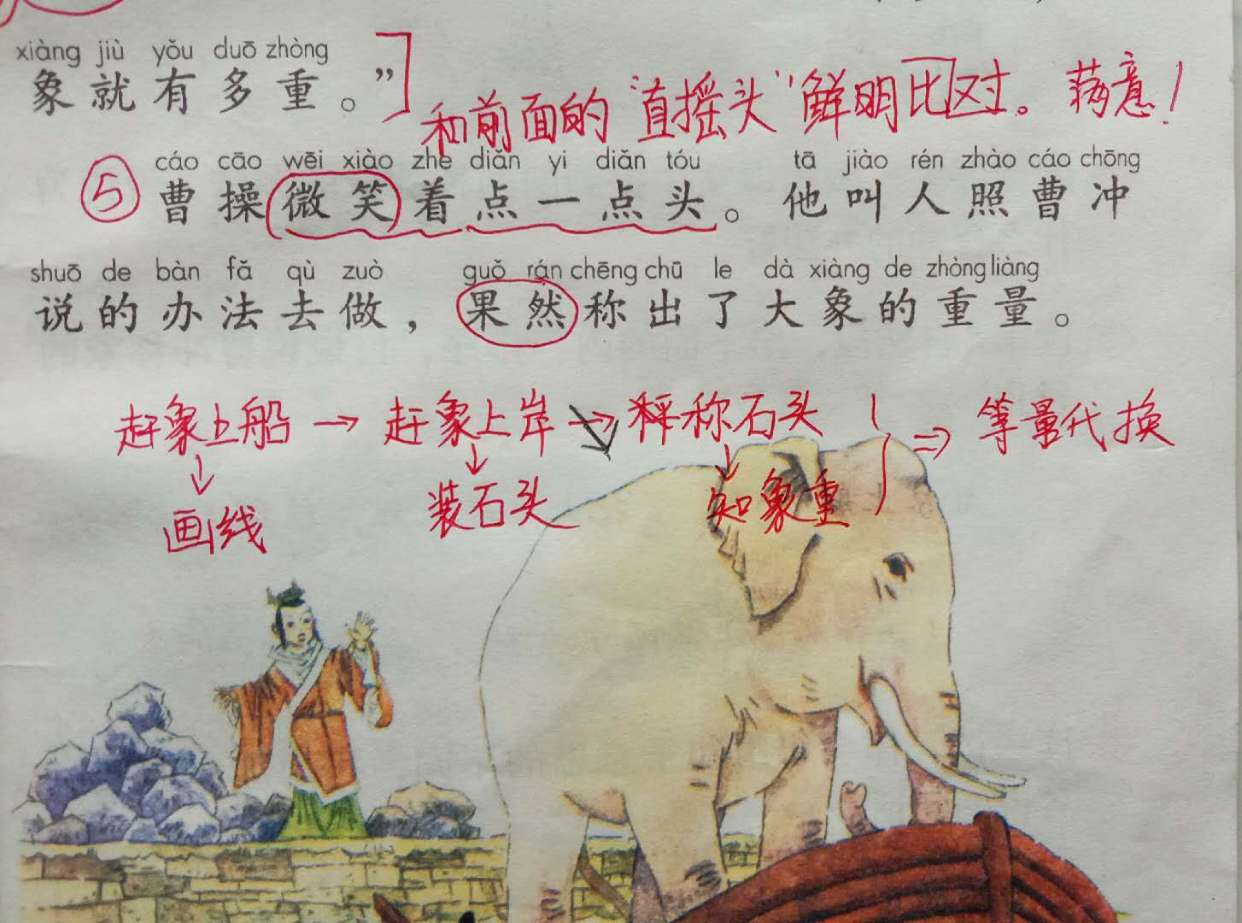 xiàng jiù yǒu duō zhòng
象就有多重。”
和前面的“直摇头”鲜明比对。满意！
cáo cāo wēi xiào zhe diǎn yi diǎn tóu tā jiào rén zhào cáo chōng
⑤ 曹操微笑着点一点头。他叫人照曹冲
shuō de bàn fǎ qù zuò guǒ rán chēng chū le dà xiàng de zhòng liàng
说的办法去做，果然称出了大象的重量。
赶象上船 → 赶象上岸 → 称石头 ⇒ 等量代换
↓ ↓ ↓
画线 装石头 知象重